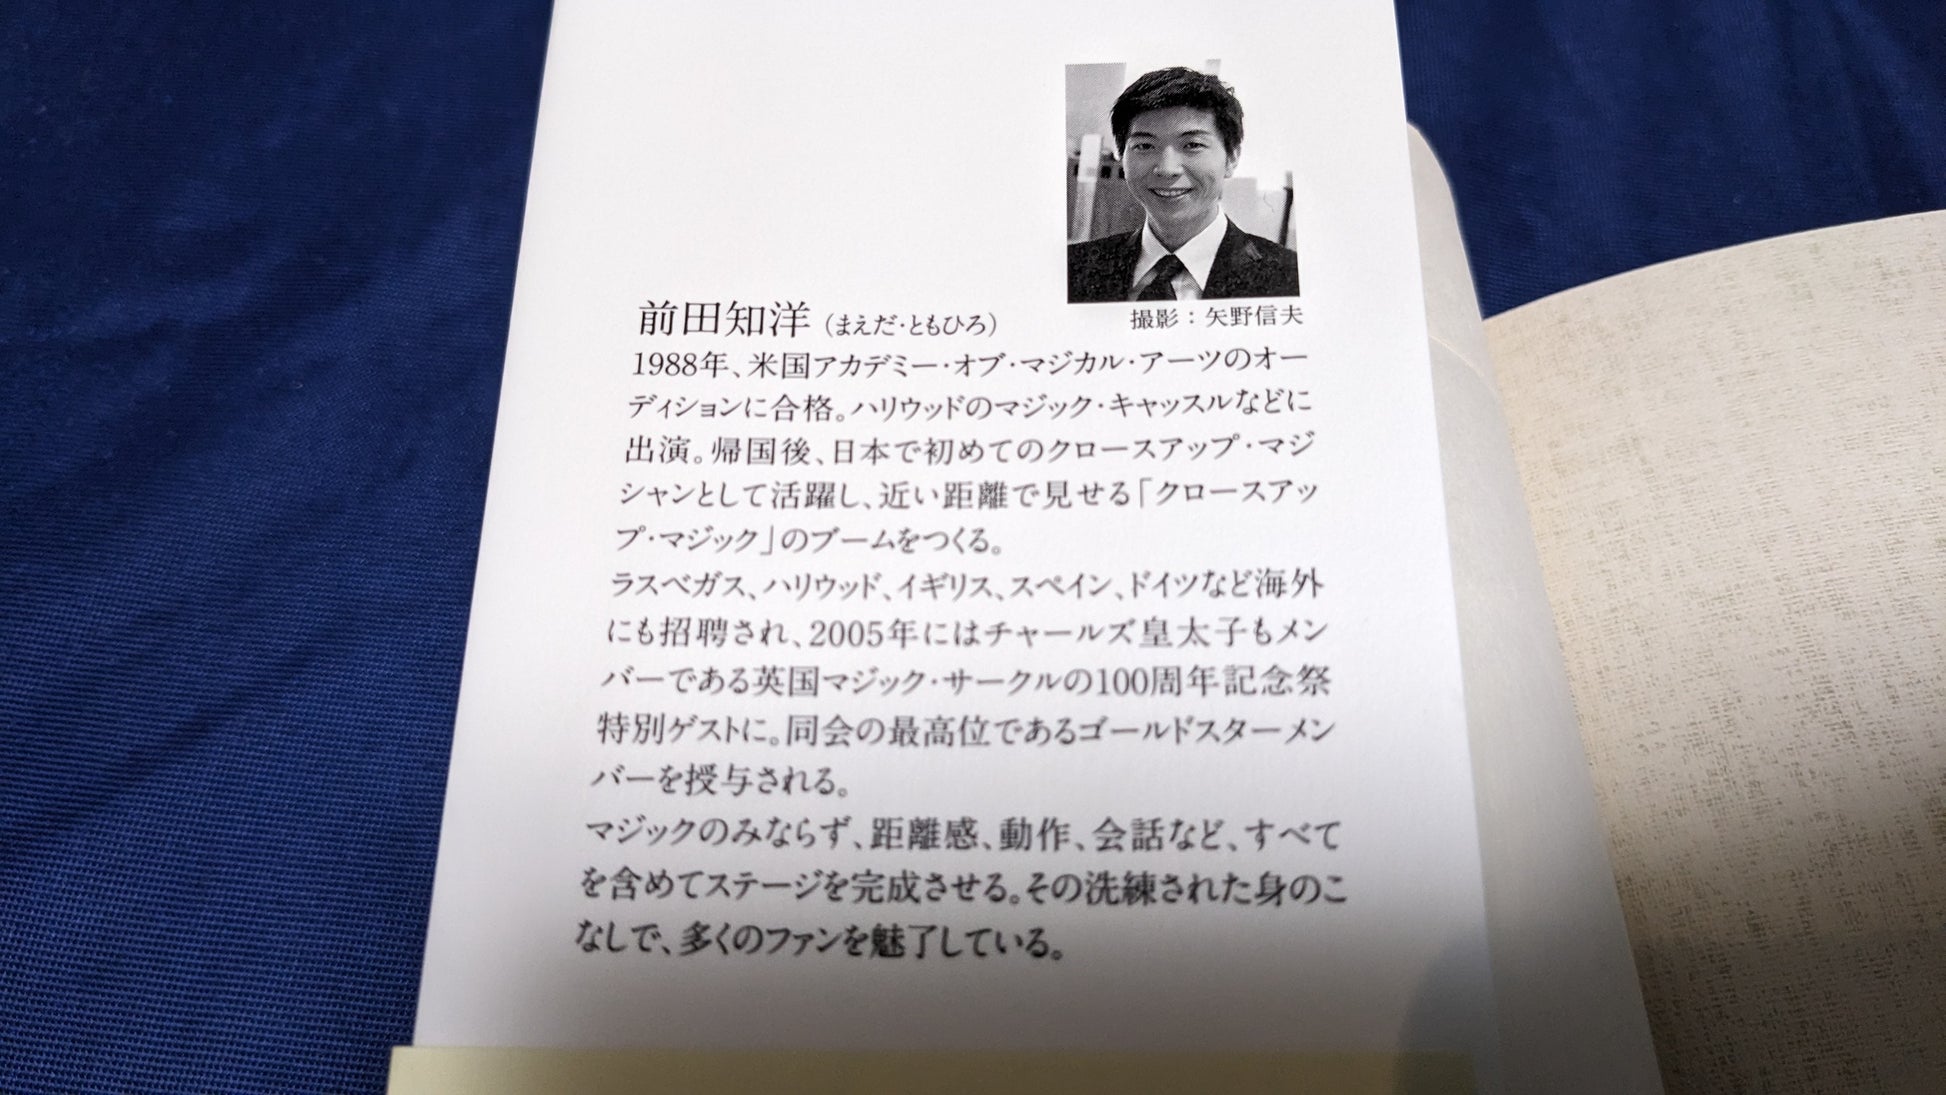 撮影：矢野信夫
前田知洋（まえだ・ともひろ）
1988年、米国アカデミー・オブ・マジカル・アーツのオー
ディションに合格。ハリウッドのマジック・キャッスルなどに
出演。帰国後、日本で初めてのクロースアップ・マジ
シャンとして活躍し、近い距離で見せる「クロースアッ
プ・マジック」のブームをつくる。
ラスベガス、ハリウッド、イギリス、スペイン、ドイツなど海外
にも招聘され、2005年にはチャールズ皇太子もメン
バーである英国マジック・サークルの100周年記念祭
特別ゲストに。同会の最高位であるゴールドスターメン
バーを授与される。
マジックのみならず、距離感、動作、会話など、すべて
を含めてステージを完成させる。その洗練された身のこ
なしで、多くのファンを魅了している。